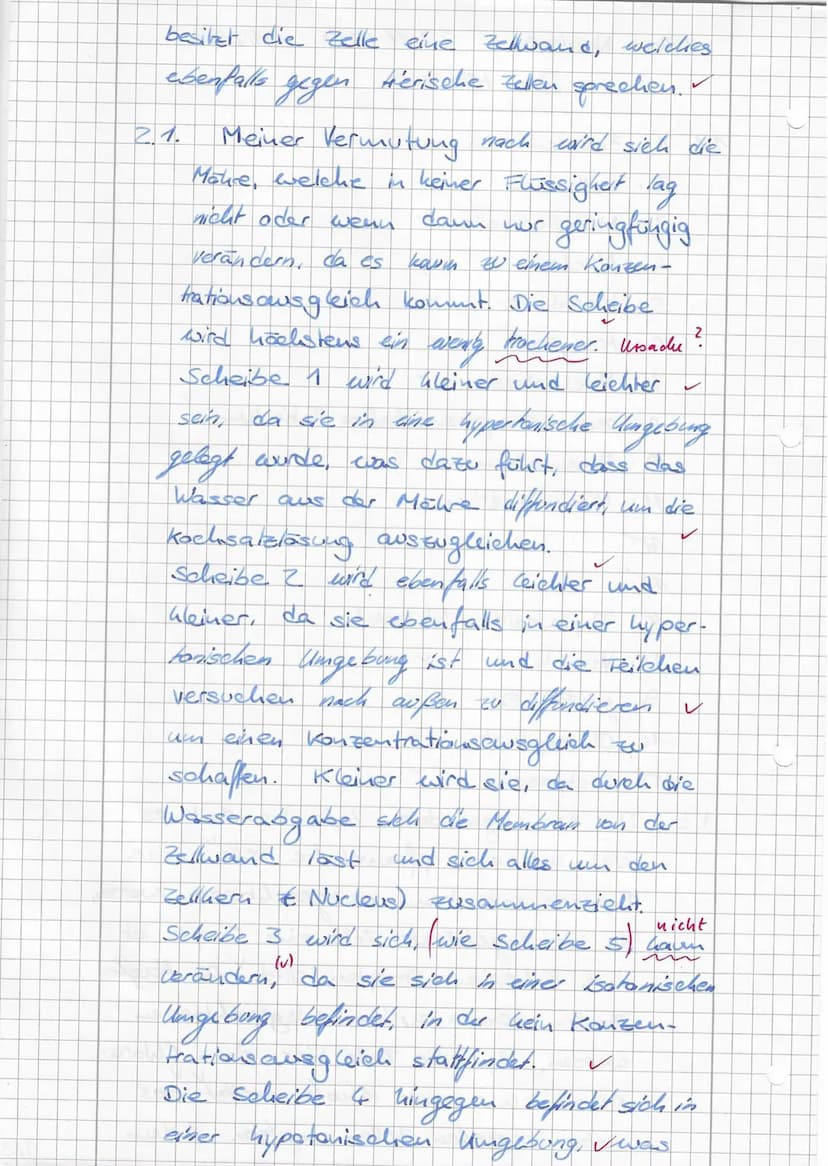 besitzt die Zelle eine Zellwand, welches
ebenfalls gegen tierische Zellen sprechen. ✓
2.1. Meiner Vermutung nach wird sich die
Möhre, welche in keiner Flüssigkeit lag
nicht oder wenn dann nur geringfüngig
verändern, da es kaum zu einem Konzen-
trationsausgleich kommt. Die Scheibe
wird höchstens ein wenig trockener. Ursache?
Scheibe 1 wird kleiner und leichter ✓
sein, da sie in eine hypertonische Umgebung
gelegt wurde, was dazu führt, dass das
Wasser aus der Möhre diffundiert, um die
Kochsalzlösung auszugleichen. ✓
Scheibe 2 wird ebenfalls leichter ✓ und
kleiner, da sie ebenfalls in einer hyper-
tonischen Umgebung ist und die Teilchen
versuchen nach außen zu diffundieren ✓
um einen Konzentrationsausgleich zu
schaffen. Kleiner wird sie, da durch die
Wasserabgabe sich die Membran von der
Zellwand löst und sich alles um den
Zellkern (Nucleus) zusammenzieht.
nicht
Scheibe 3 wird sich, (wie Scheibe 5) kaum
verändern, (✓) da sie sich in einer isotonischen
Umgebung befindet, in der kein Konzen-
trationsausgleich stattfindet. ✓
Die Scheibe 4 hingegen befindet sich in
einer hypotonischen Umgebung, ✓ was